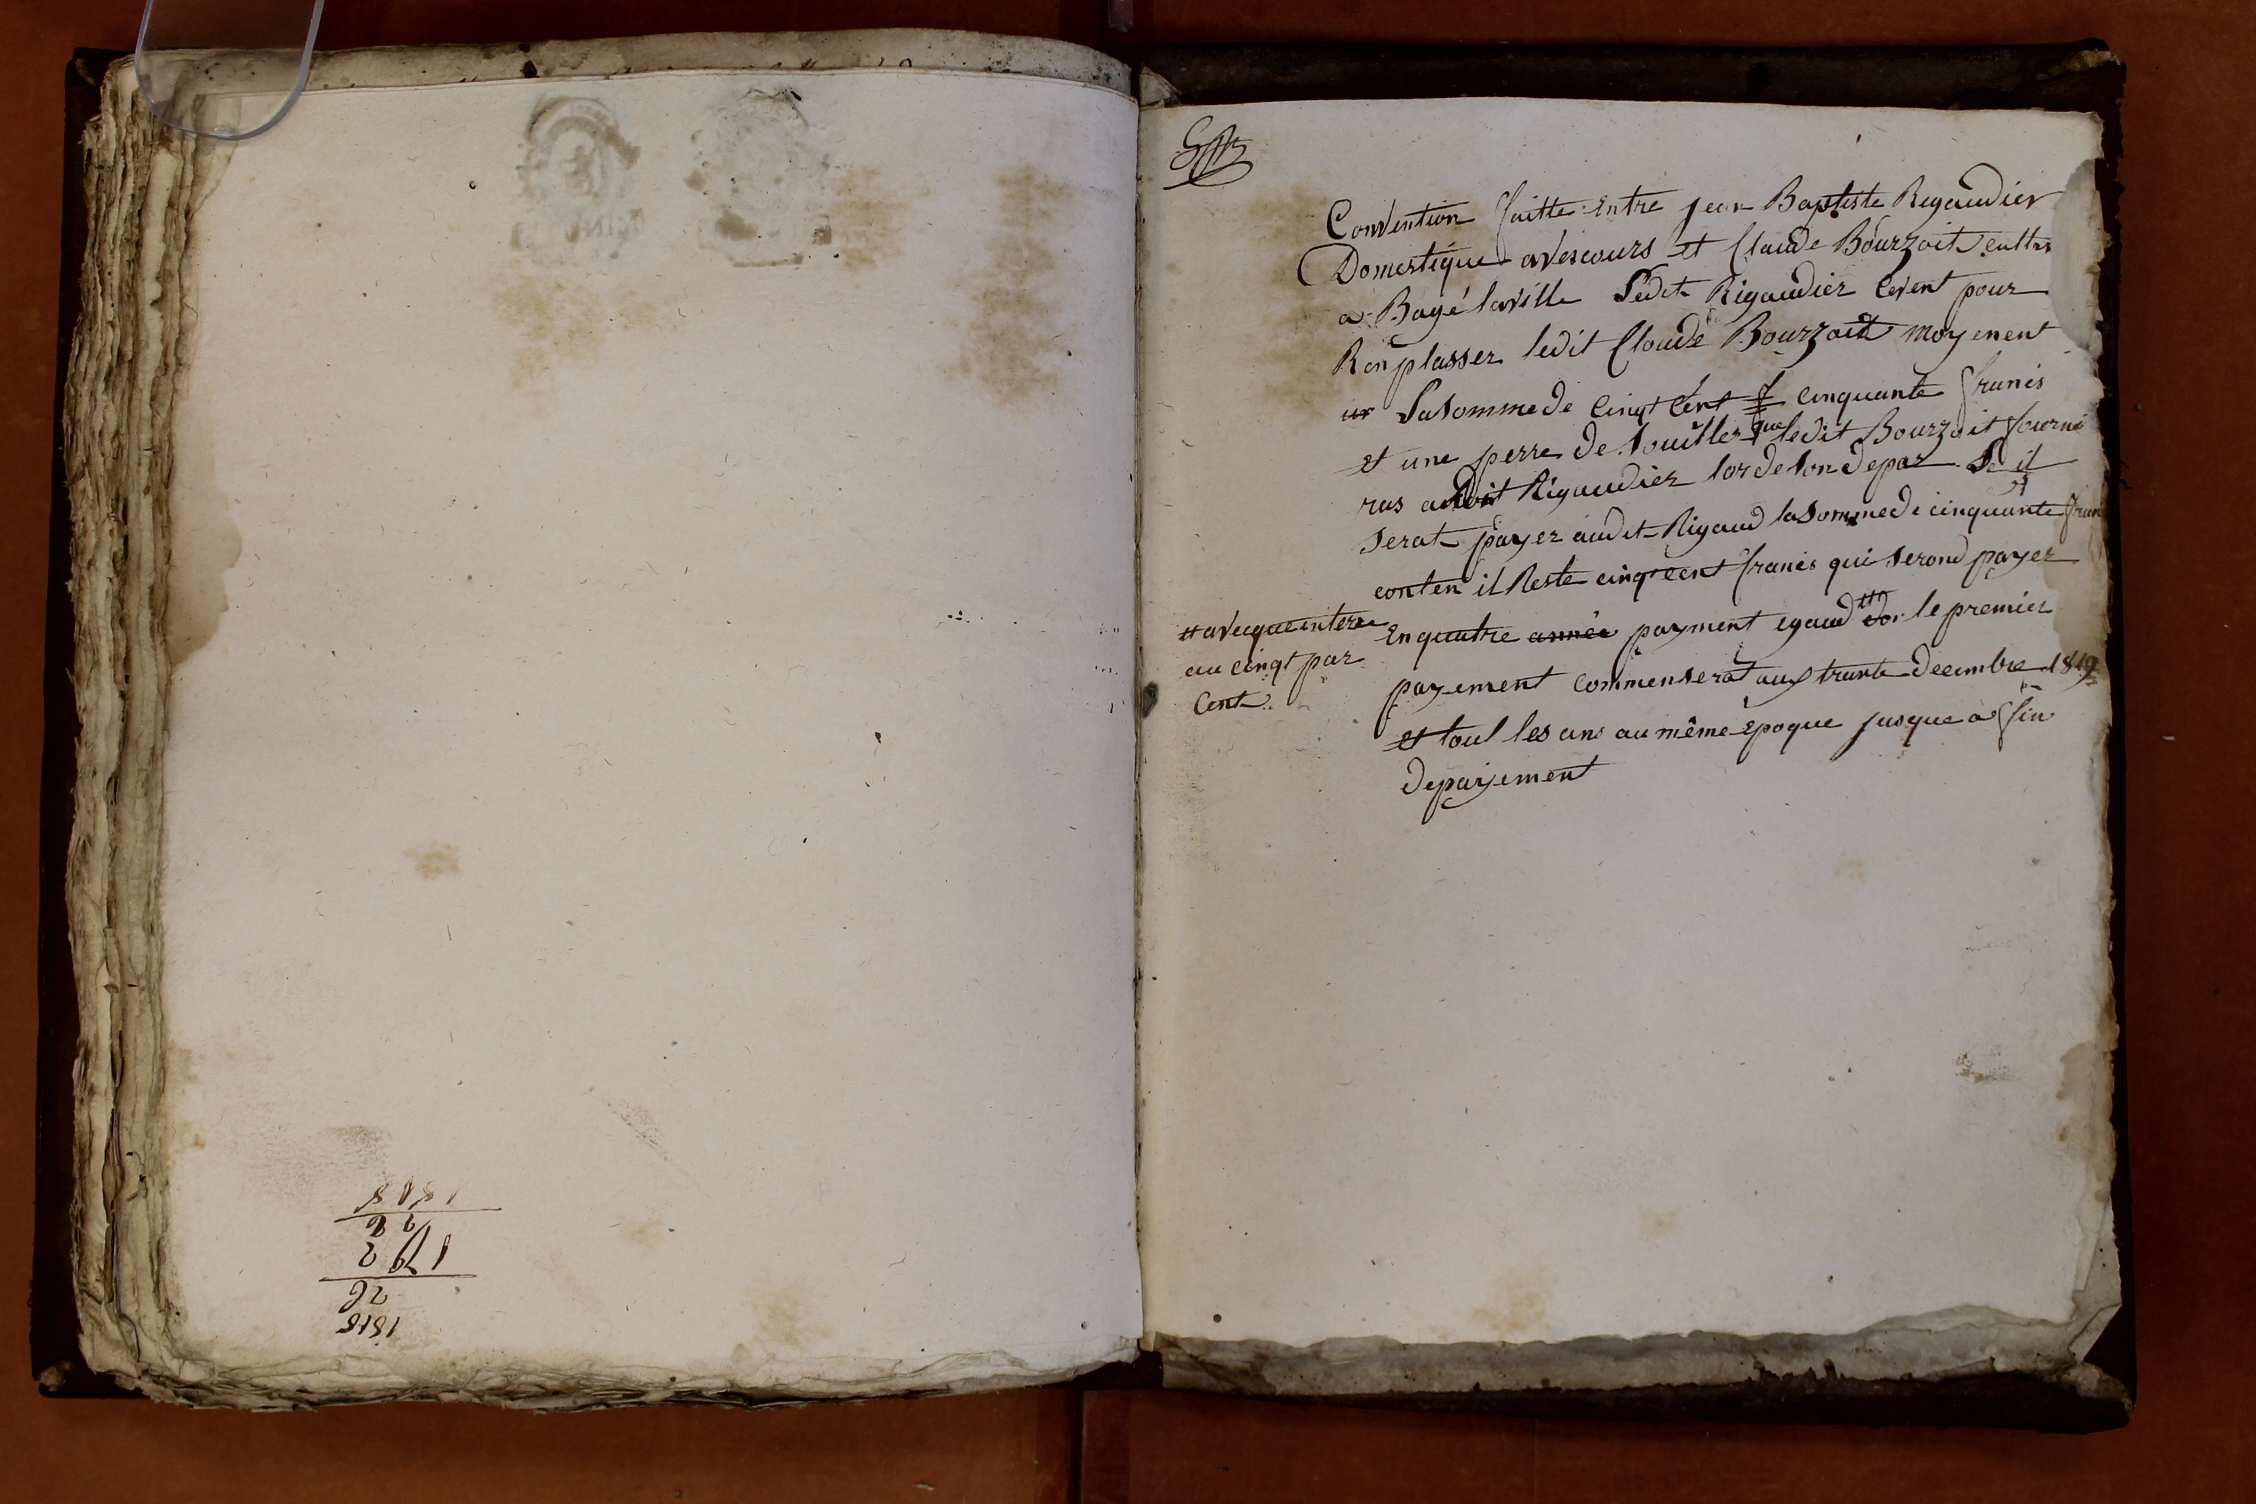 1818
26
1792
1818
Convention faitte entre jean Baptiste Rigaudier
Domestique a Vescours et Claude Bourzait cultr
a Bagé laville Ledit Rigaudier ce vent pour
Ronplasser ledit Claude Bourzait moyenent
La Somme de Cinqt Cent cinquante francs
et une perre de Souiller que ledit Bourzait fourni
ras audit Rigaudier lor de Son depar
Serat payer audit Rigaud la Somme de cinquante fran
conten il Reste cinq cent francs qui Serond payer
En quatre année payment egaud le premier
tt avecque intere
au cinqt par
Cent
payement commenserat aux trante decembre 1819
et toul les ans au même Epoque jusque a fin
de payement